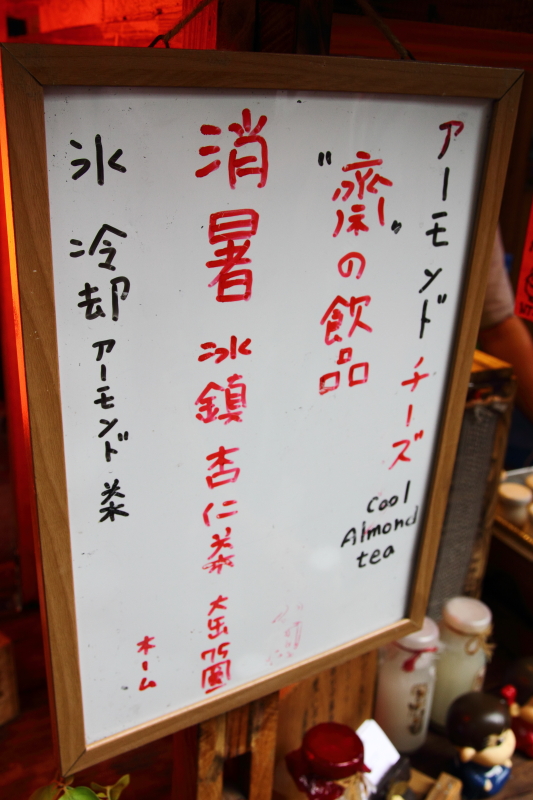 アーモンドチーズ
cool
Almond
tea
"齋"の飲品
消暑冰鎮杏仁茶
氷冷却アーモンド茶
ホーム